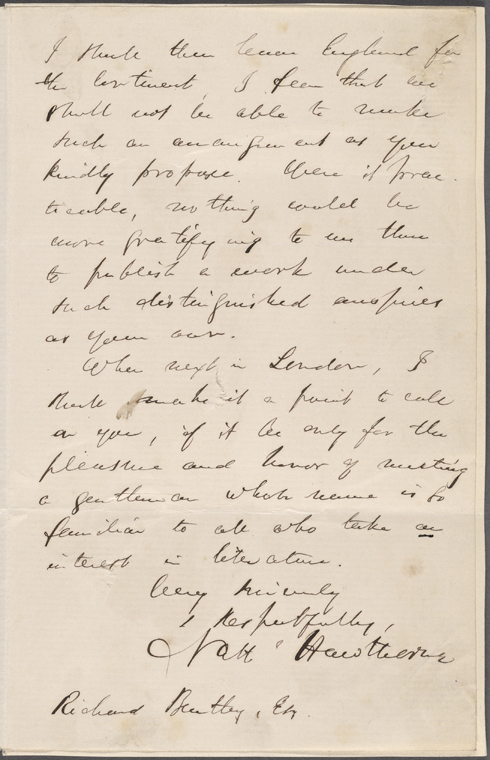 I shall then leave England for
the Continent, I fear that we
shall not be able to make
such an arrangement as you
kindly propose. Were it prac-
ticable, nothing would be
more gratifying to me than
to publish a work under
such distinguished auspices
as your own.
When next in London, I
shall make it a point to call
on you, if it be only for the
pleasure and honor of meeting
a gentleman whose name is so
familiar to all who take an
interest in literature.
Very sincerely
& respectfully,
Nath Hawthorne
Richard Bentley, Esq.